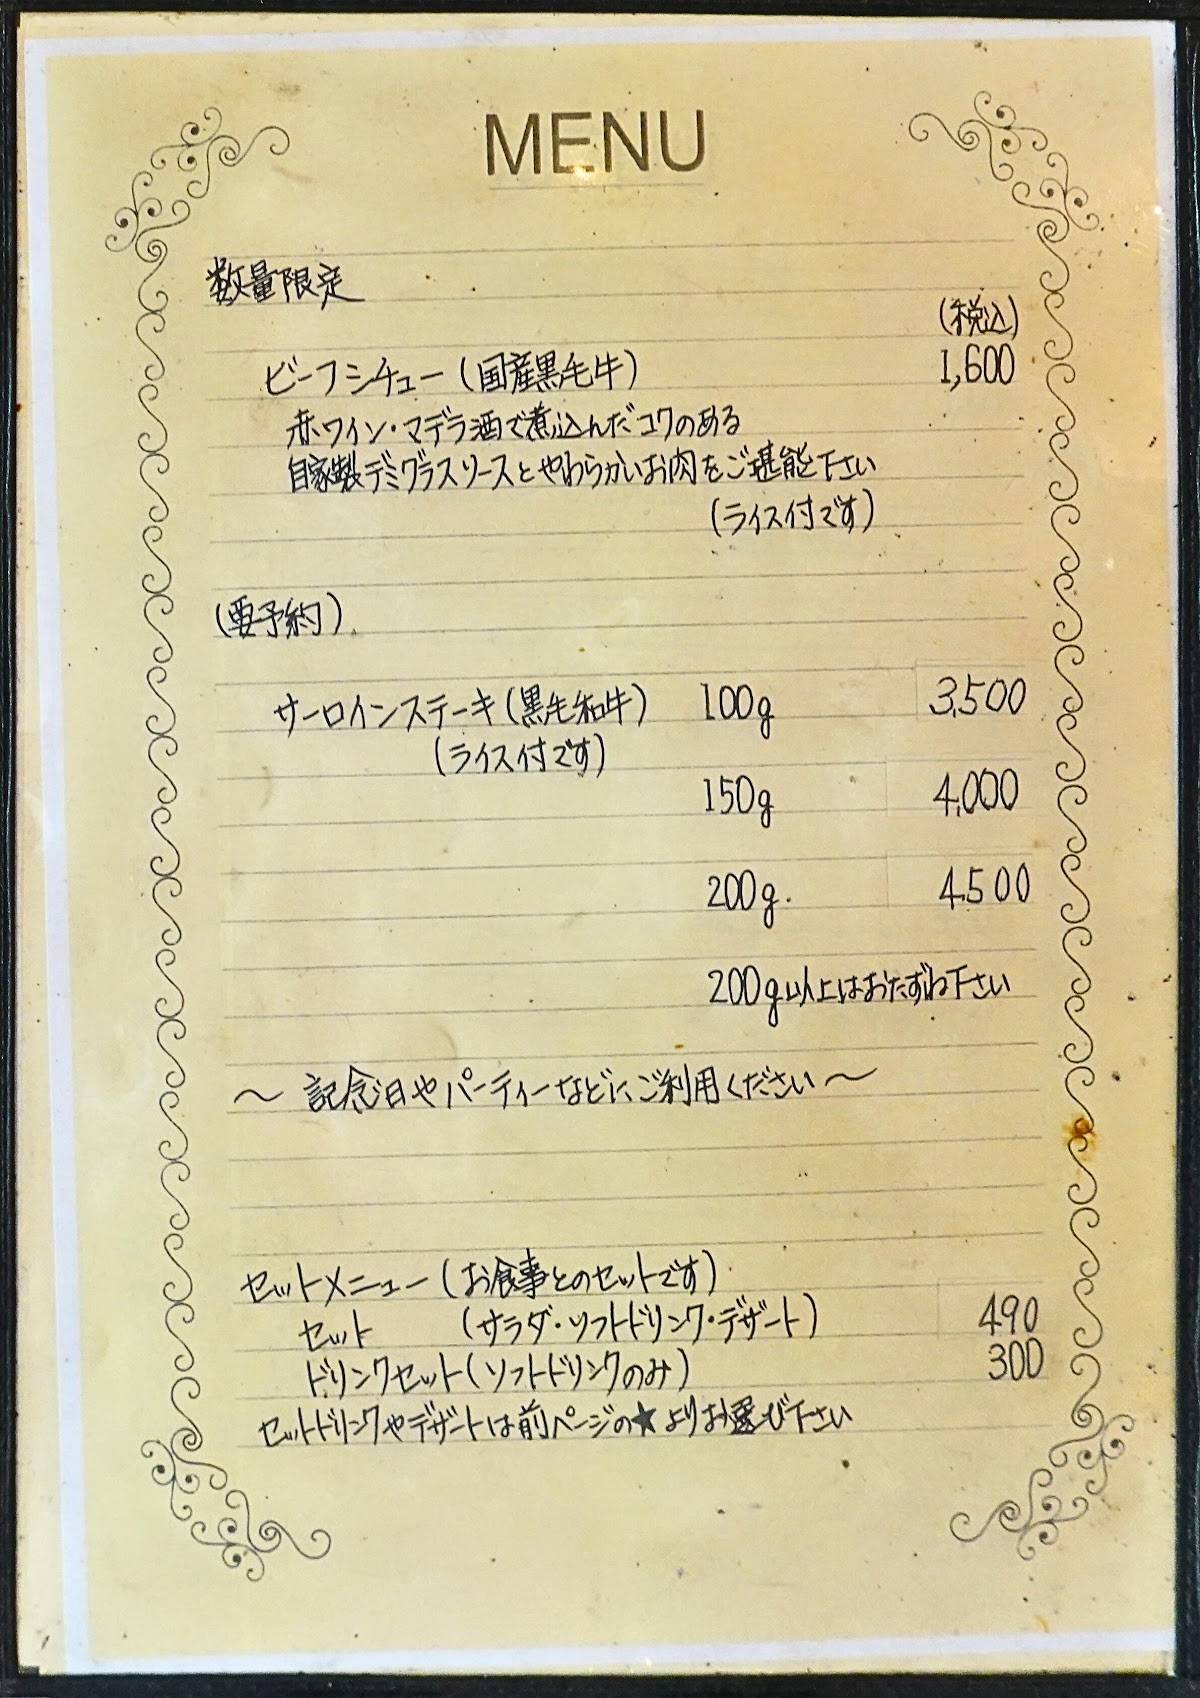 MENU
数量限定
(税込)
ビーフシチュー(国産黒毛牛) 1,600
赤ワイン・マデラ酒で煮込んだコクのある
自家製デミグラスソースとやわらかいお肉をご堪能下さい
(ライス付です)
(要予約)
サーロインステーキ(黒毛和牛) 100g 3,500
(ライス付です)
150g 4,000
200g. 4,500
200g以上はおたずね下さい
～ 記念日やパーティーなどにご利用ください～
セットメニュー(お食事とのセットです)
セット (サラダ・ソフトドリンク・デザート) 490
ドリンクセット(ソフトドリンクのみ) 300
セットドリンクやデザートは前ページの★よりお選び下さい